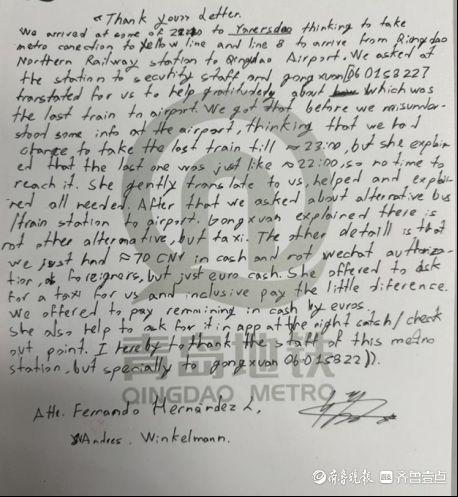 “Thank yours letter.
We arrived at some of to thinking to take
metro conection to Yellow line and line 8 to arrive from Qiongdao
Northern Railway station to Qingdao Airport. We asked at
the station to security staff, and gongxuan
translated for us to help gratitudely about which was
the last train to airport. We got that before we misunder-
stood some info at the airport, thinking that we had
chance to take the last train till ≈ 23:00, but she explain
ed that the last one was just like ≈ 22:00, so no time to
reach it. She gently translate to us, helped and explai-
ned all needed. After that we asked about alternative bus
/train station to airport. Gongxuan explained there is
not other alternative, but taxi. The other detaill is that
we just had ≈70 CNY in cash and not wechat
tion, foreigners, but just euro cash. She offered to ask
for a taxi for us and inclusive pay the little diference.
We offered to pay remaining in cash by euros.
She also help to ask for it in app at the right catch/check
out point. I hereby to thank the staff of this metro
station, but specially to gongxuan
青岛地铁
QINGDAO METRO
Atte. Fernando Hernández L.
Andres Winkelmann.
齐鲁晚报 齐鲁壹点